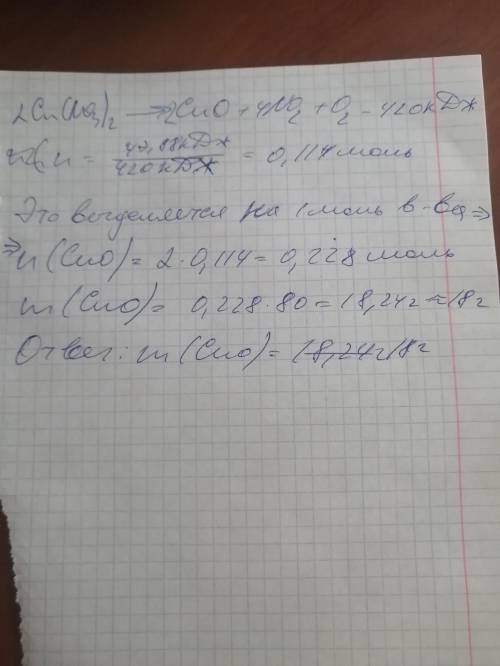 2Cu(NO3)2 → 2CuO + 4NO2 + O2 - 420кДж
n = 47,88кДж / 420кДж = 0,114 моль
Это выделяется на 1 моль в-ва ⇒
⇒ n(CuO) = 2·0,114 = 0,228 моль
m(CuO) = 0,228·80 = 18,24г ≈ 18г
Ответ: m(CuO) = 18г